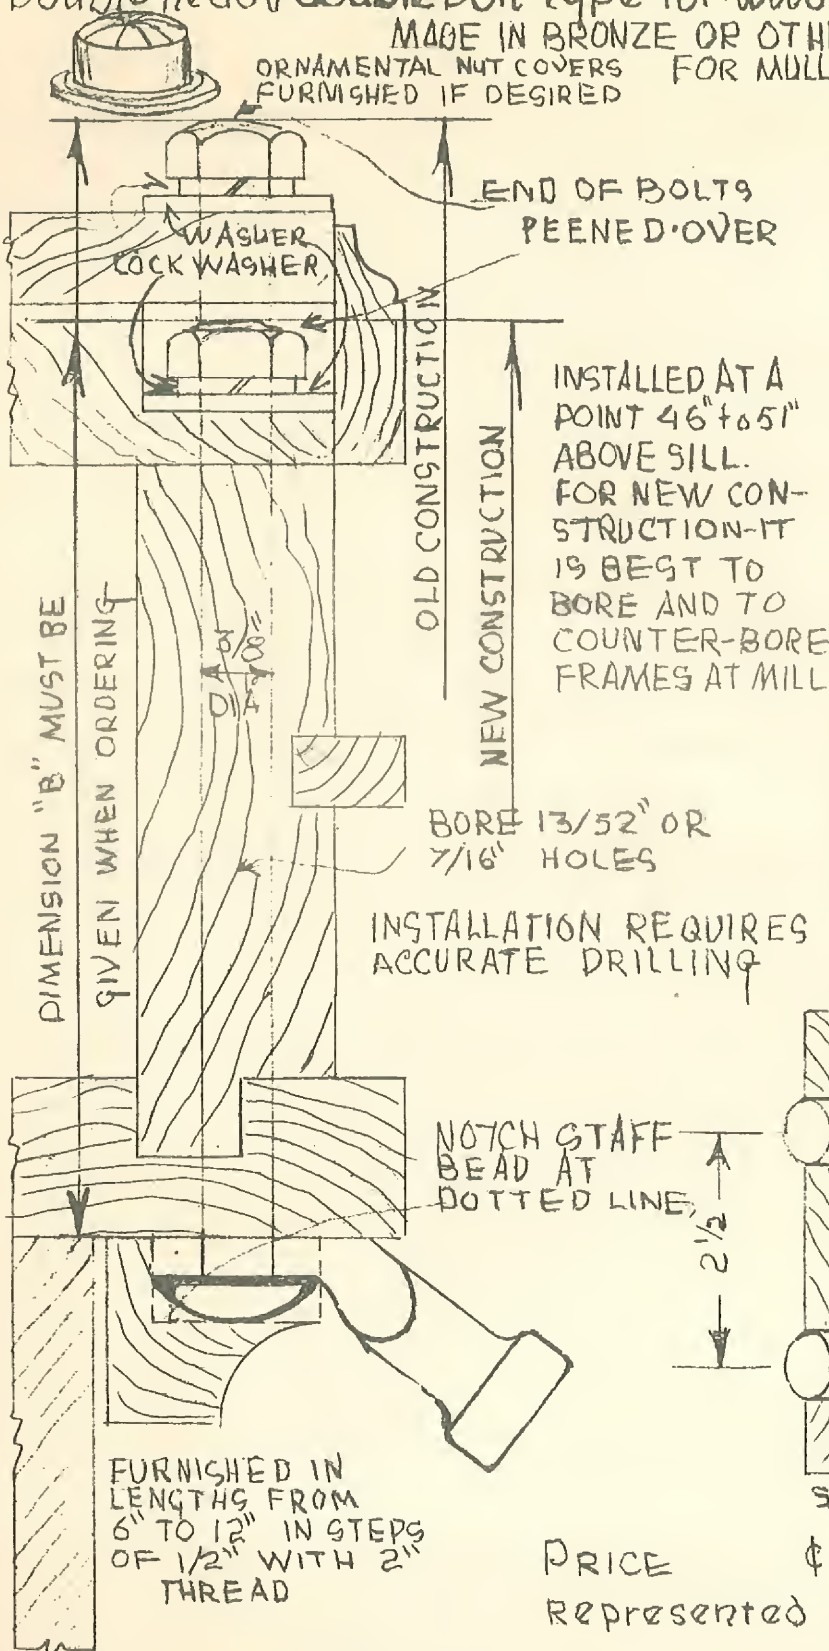 Double head / double bolt type for
MADE IN BRONZE OR
ORNAMENTAL NUT COVERS
FURNISHED IF DESIRED
FOR
END OF BOLTS
PEENED·OVER
WASHER
LOCK WASHER
OLD CONSTRUCTION
NEW CONSTRUCTION
INSTALLED AT A
POINT 46" to 51"
ABOVE SILL.
FOR NEW CON-
STRUCTION-IT
IS BEST TO
BORE AND TO
COUNTER-BORE
FRAMES AT MILL
DIMENSION "B" MUST BE
GIVEN WHEN ORDERING
BORE 13/32" OR
7/16" HOLES
INSTALLATION REQUIRES
ACCURATE DRILLING
NOTCH STAFF
BEAD AT
DOTTED LINE
2 1/2
FURNISHED IN
LENGTHS FROM
6" TO 12" IN STEPS
OF 1/2" WITH 2"
THREAD
PRICE
Represented